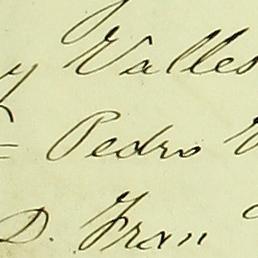 y Valles
Pedro
D. Fran